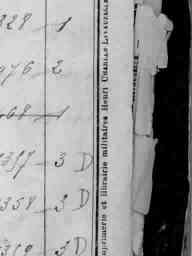 328 — 1
976 — 2
468 — 1
3357 — 3 D
3358 — 3 D
3 D
Imprimerie et librairie militaires Henri CHARLES-LAVAUZELLE